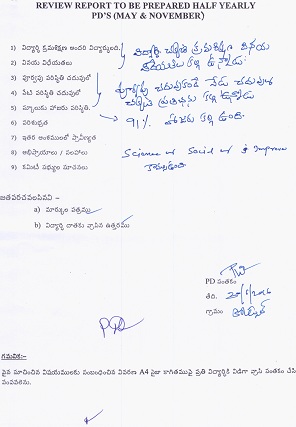 REVIEW REPORT TO BE PREPARED HALF YEARLY
PD'S (MAY & NOVEMBER)
1) విద్యార్థి క్రమశిక్షణ అందరి విద్యార్థులది.
2) వినయ విధేయతలు
3) పూర్వపు పరిస్థితి చదువులో
4) నేటి పరిస్థితి చదువులో
5) స్కూలుకు హాజరు పరిస్థితి.
6) పరిశుభ్రత
7) ఇతర అంశములలో ప్రావీణ్యత
8) అభిప్రాయాలు / సలహాలు
9) కమిటీ సభ్యుల సూచనలు
విద్యార్థి చక్కని క్రమశిక్షణ వినయ
విధేయతలు కల్గి ఉన్నాడు
పూర్వపు చదువుకంటే నేడు చదువులో
ఉన్నాడు
91% హాజరు కల్గి ఉంది.
Science or Social or Improve
జతపరచవలసినవి :-
a) మార్కుల పత్రము
b) విద్యార్థి దాతకు వ్రాసిన ఉత్తరము
PD సంతకం
తేది.
గ్రామం
గమనిక:-
పైన సూచించిన విషయములకు సంబంధించిన వివరణ A4 సైజు కాగితముపై ప్రతి విద్యార్థికి విడిగా వ్రాసి సంతకం చేసి
పంపవలెను.